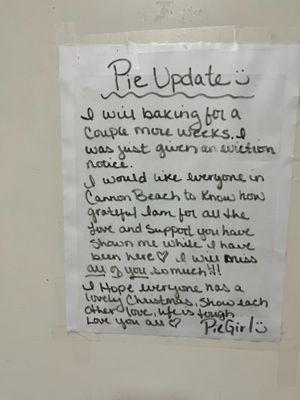 Pie Update
I will baking for a
couple more weeks. I
was just given an eviction
notice.
I would like everyone in
Cannon Beach to know how
grateful I am for all the
love and support you have
shown me while I have
been here ♡ I will miss
all of you so much!!!
I Hope everyone has a
lovely Christmas, show each
other love, life is tough
Love you all ♡ PieGirl